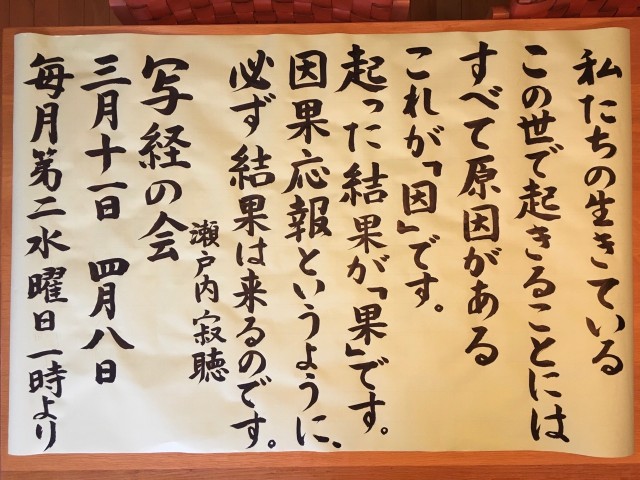 私たちの生きている
この世で起きることには
すべて原因がある
これが「因」です。
起った結果が「果」です。
因果応報というように、
必ず結果は来るのです。
瀬戸内寂聴
写経の会
三月十一日 四月八日
毎月第二水曜日一時より